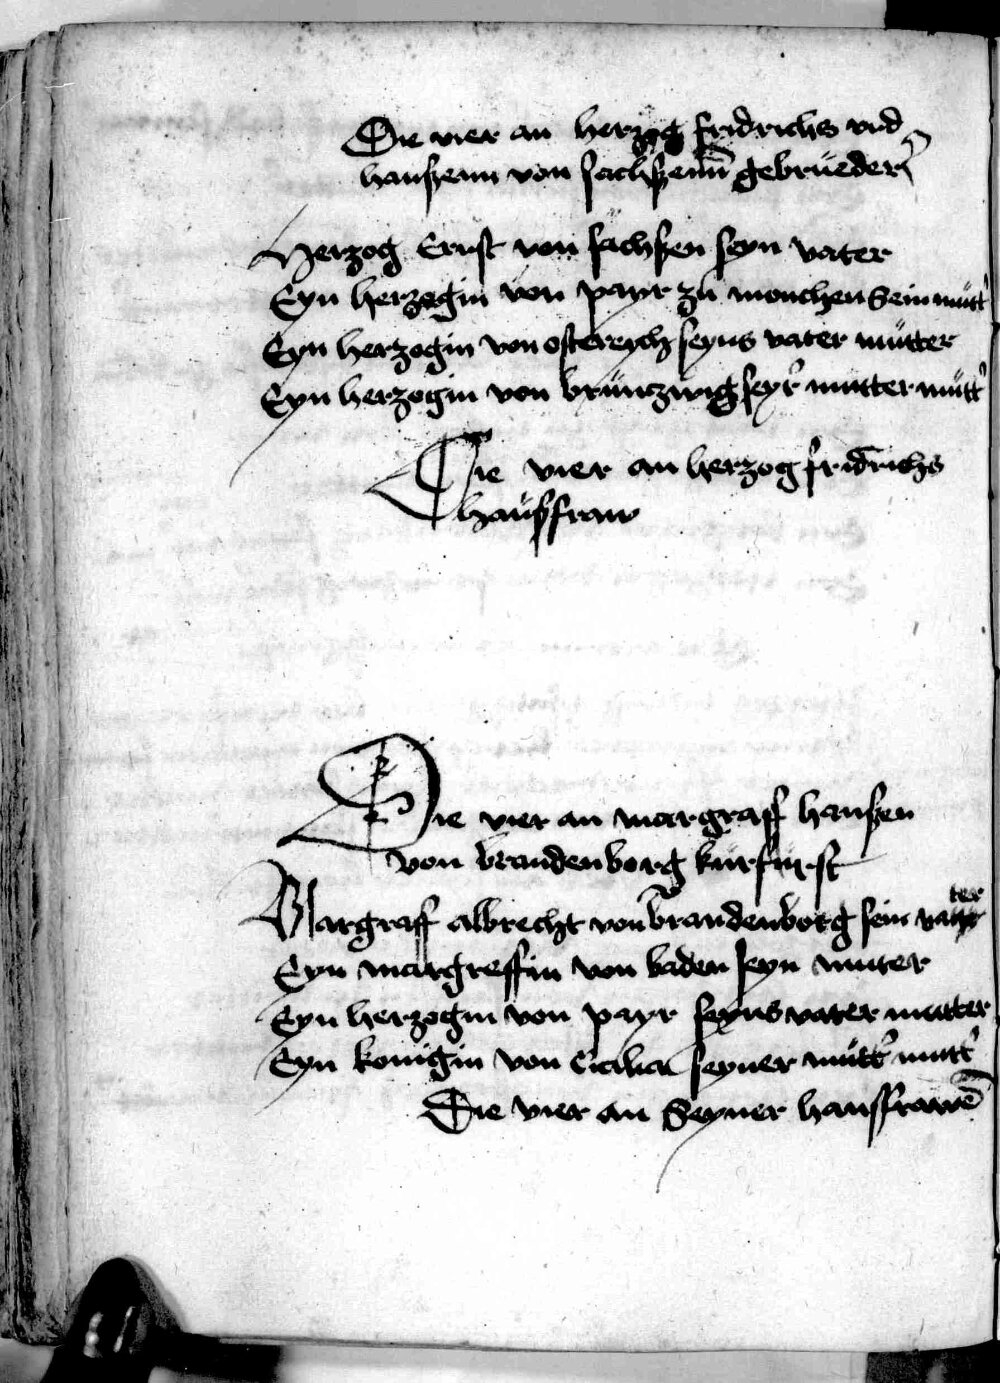 Die vier an herzog fridrichs vnd
hanßenn von sachßenn gebrüeder
Herzog Ernst von sachßen seyn vater
Eyn herzogin von payr zu monchen Sein mutt'
Eyn herzogin von osterych seyns vater mutter
Eyn herzogin von brunzwig seyr mutter mutt'
Die vier an herzog fridrichs
haußfraw
Die vier an margraff hanßen
von brandenborg kurfurst
Margraff albrecht von brandenborg sein vatter
Eyn margreffin von baden seyn muter
Eyn herzogin von payr seyns vater mutter
Eyn konigin von Cicilia seyner mutt' mutt'
Die vier an Seyner haußfrawē